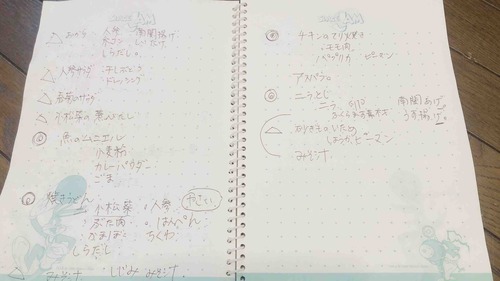 △ おから 人参 南関揚げ
水コン しいたけ
しらだし。
△ 人参サラダ ・干しぶどう
・ドレッシング
△ 春菊のサラダ
△ 小松菜の煮びたし
魚のムニエル
小麦粉
カレーパウダー
ごま
焼きうどん やさい
・小松菜 ・人参
・ぶた肉 ・はんぺん
・かまぼこ ・ちくわ
しらだし
△ みそ汁 しじみ みそ汁。
チキンのてり焼き
・モモ肉
・パプリカ ピーマン
アスパラ。
⑥ ニラとじ
ニラ、卵 南関あげ
うす揚げ。
△ いため
しょうが、ピーマン
みそ汁